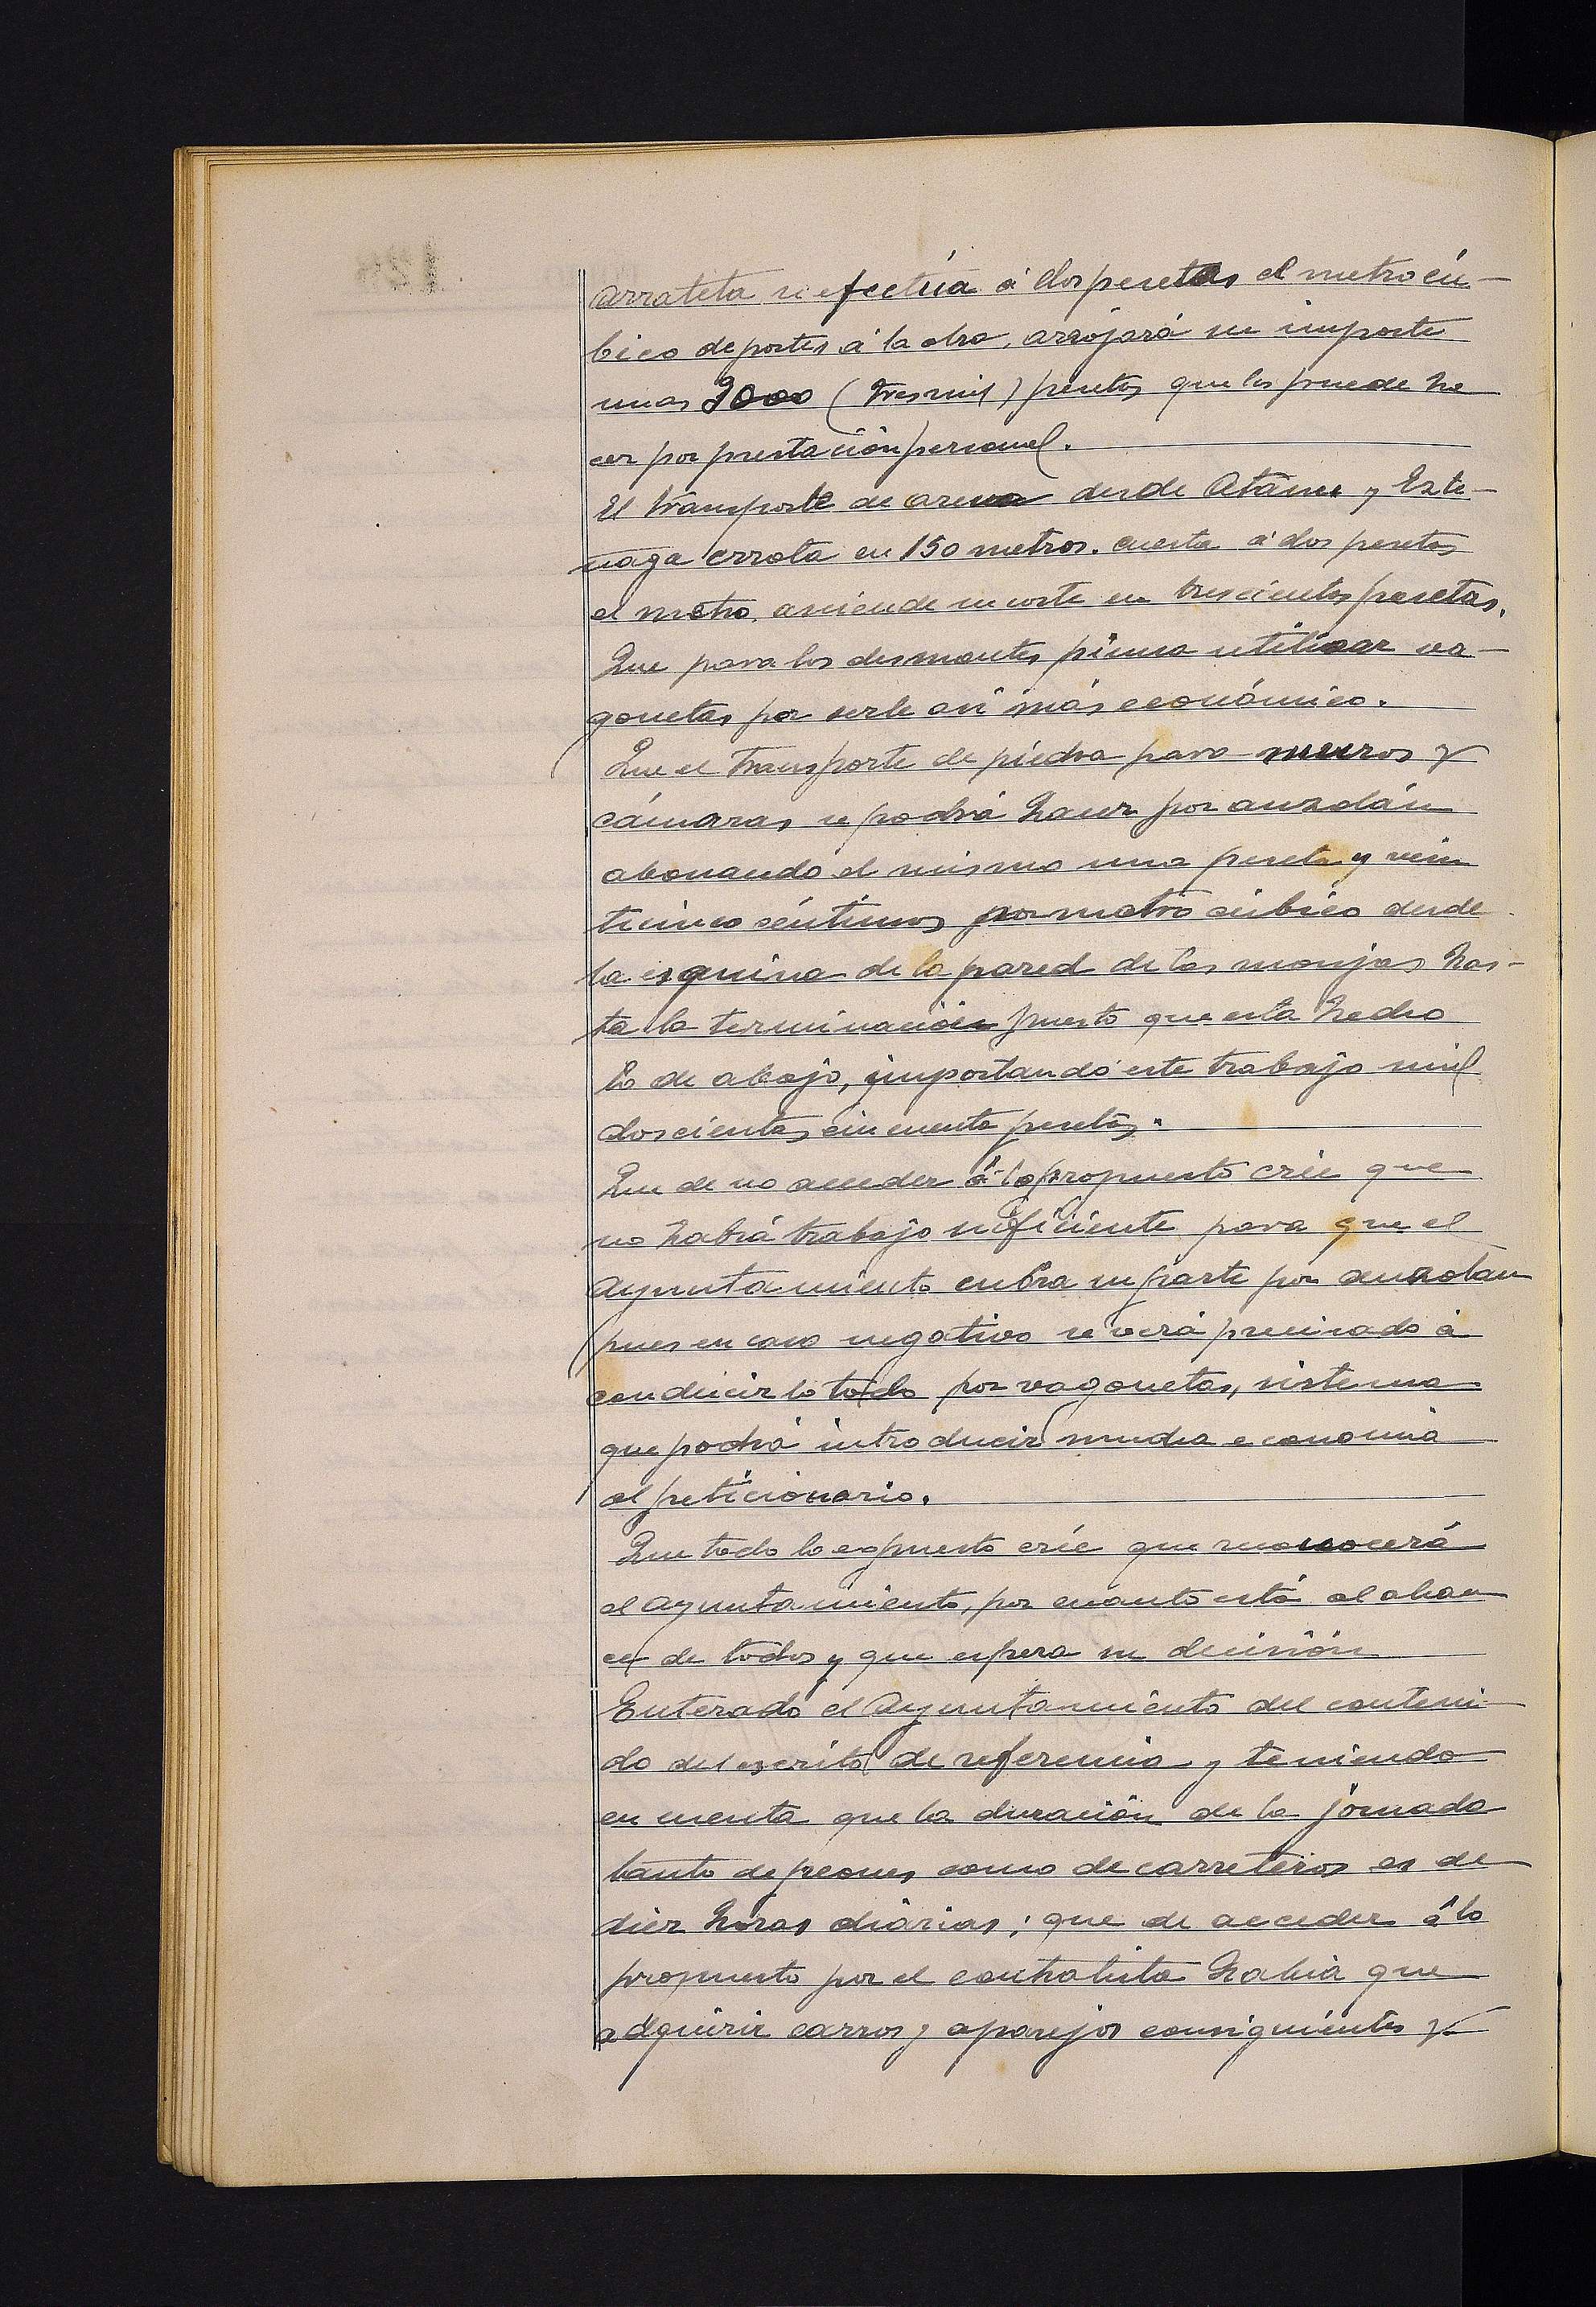 arrateta se efectúa á dos pesetas el metro cú-
bico de portes á la obra, arrojará su importe
unas 3000 (tres mil) pesetas que las puede ha
cer por prestación personal.
El transporte de arena desde Atáun y Exte-
naga errota en 150 metros. cuesta á dos pesetas
el metro. asciende su coste en trescientas pesetas.
Que para los desmontes piensa utilizar va-
gonetas, por serle así más económico.
Que el transporte de piedra para muros y
cámaras, se podrá hacer por auzolán
abonando el mismo una peseta y vein
ticinco céntimos por metro cúbico desde
la esquina de la pared de las monjas has-
ta la terminación puesto que esta hecho
lo de abajo, importando este trabajo mil
doscientas cincuenta pesetas.
Que de no acceder á lo propuesto crée que
no habrá trabajo suficiente para que el
Ayuntamiento cubra su parte por auzolan
pues en caso negativo se verá precisado á
conducirlo todo por vagonetas, sistema
que podrá introducir mucha economia
al peticionario.
Que todo lo expuesto crée que reconocerá
el Ayuntamiento, por cuanto está al alcan
ce de todos y que espera su decisión
Enterado el Ayuntamiento del conteni-
do del escrito de referencia y teniendo
en cuenta que la duración de la jornada
tanto de peones, como de carreteros es de
diez horas diárias; que de acceder á lo
propuesto por el contratista habia que
adquirir carros y aparejos consiguientes y